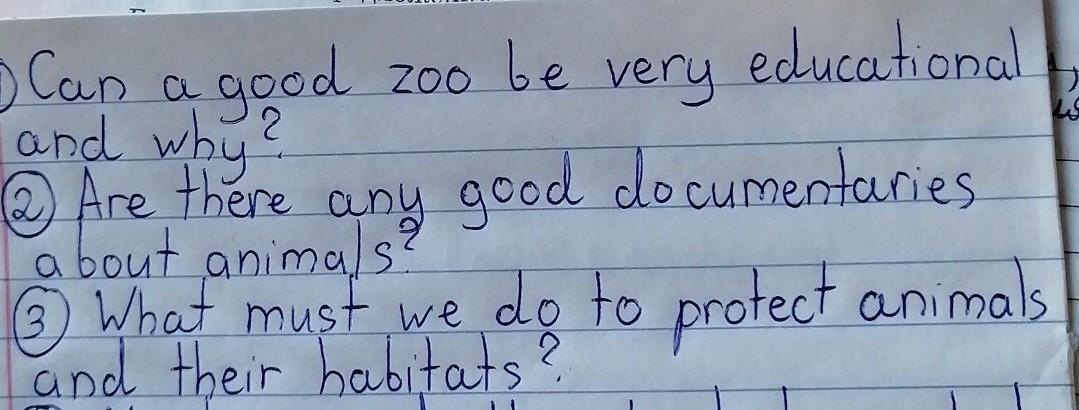 ① Can a good zoo be very educational
and why?
② Are there any good documentaries
about animals?
③ What must we do to protect animals
and their habitats?